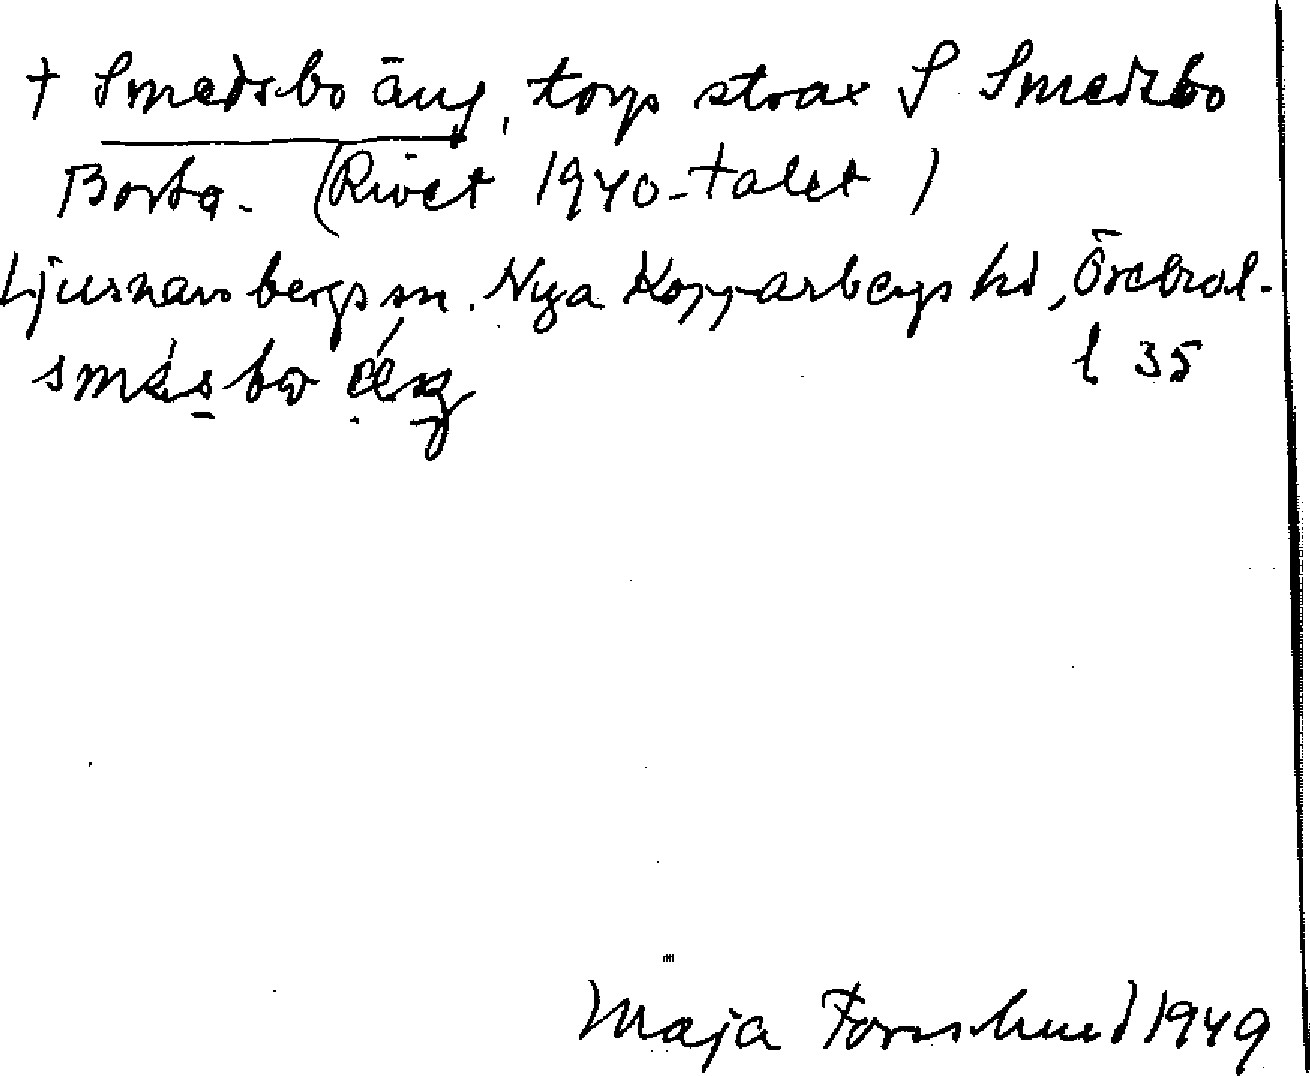 † Smedsbo äng, torp strax S Smedsbo
Borta. (Rivet 1940-talet)
Ljusnarsbergs sn. Nya Kopparbergs hd, Örebro l.
l 35
Maja Forsslund 1949